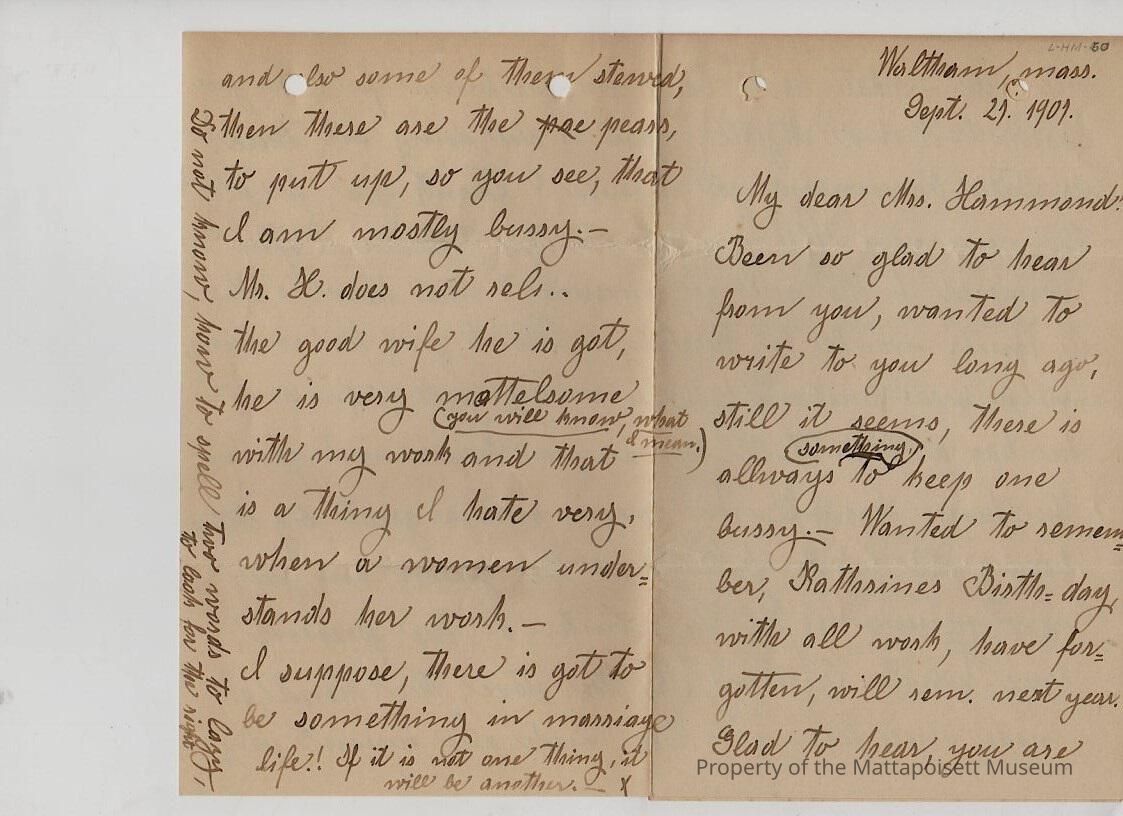 L-HM-60
Waltham, mass.
Sept. 29. 1909.
My dear Mrs. Hammond!
Been so glad to hear
from you, wanted to
write to you long ago,
still it seems, there is
something,
allways to keep one
bussy.— Wanted to remem=
ber, Kathrines Birth=day,
with all work, have for=
gotten, will rem. next year.
Glad to hear, you are
and also some of them stewed,
then there are the pae pears,
to put up, so you see, that
I am mostly bussy.—
Mr. H. does not rels..
the good wife he is got,
he is very mattelsome
(you will know, what
I mean.)
with my work and that
is a thing I hate very,
when a women under=
stands her work.—
I suppose, there is got to
be something in marriage
life!! If it is not one thing, it
will be another.— x
Do not know, how to spell two words to lazy,
to look for the right
Property of the Mattapoisett Museum